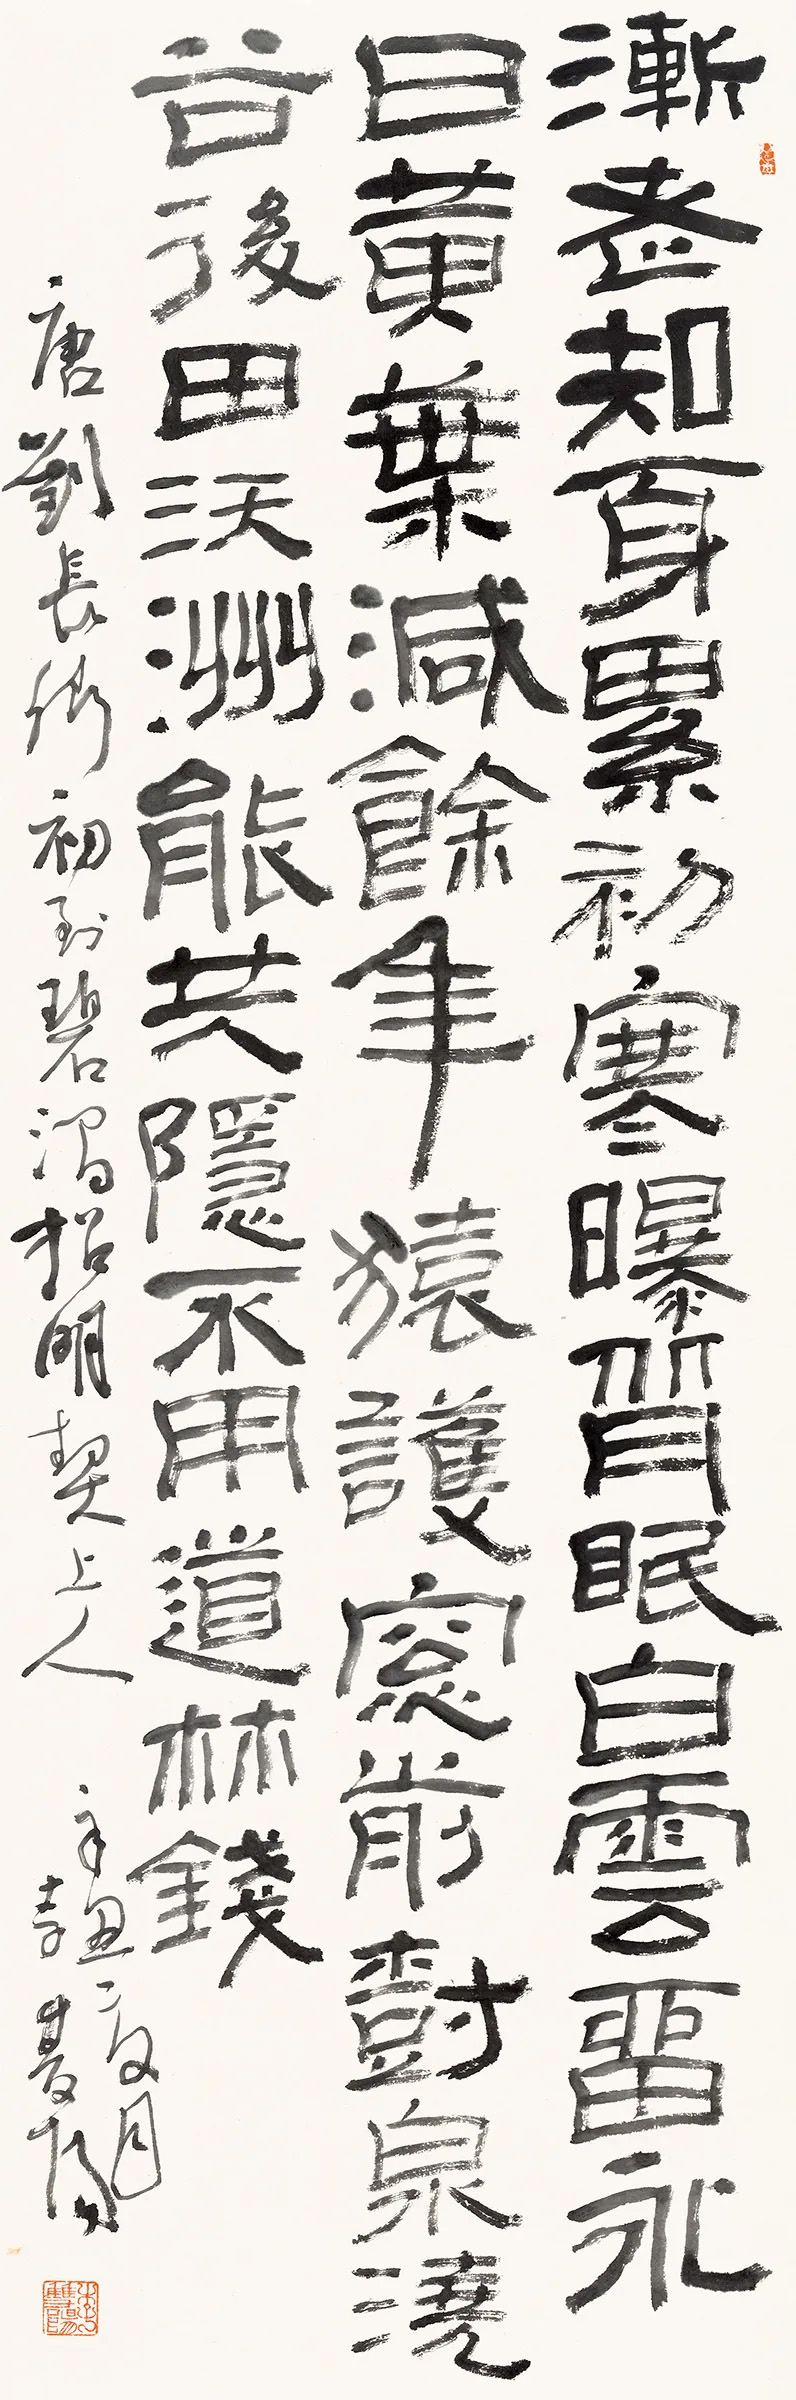 漸老知身累初寒曝背眠白雲畱永
日黃葉減餘年猿護窻前樹泉澆
谷後田沃洲能共隱不用道林錢
唐劉長卿初到碧澗招明契上人
辛丑夏月
李雙陽